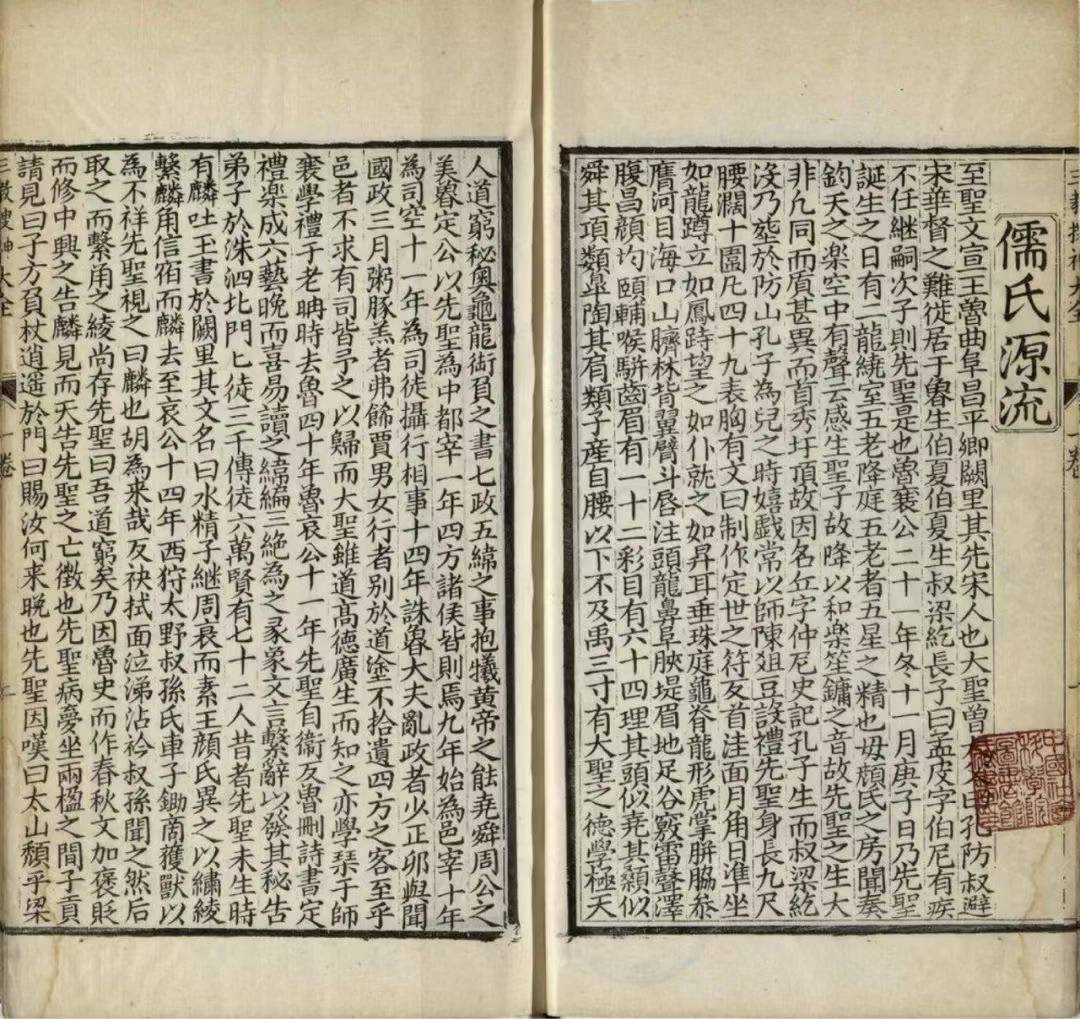 儒氏源流
至聖文宣王魯曲阜昌平鄉闕里其先宋人也大聖曾 曰孔防叔避
宋華督之難徙居于魯生伯夏伯夏生叔梁紇長子曰孟皮字伯尼有疾
不任継嗣次子則先聖是也魯襄公二十一年冬十一月庚子日乃先聖
誕生之日有二龍繞室五老降庭五老者五星之精也毋顏氏之房聞奏
鈞天之楽空中有聲云感生聖子故降以和楽笙鏞之音故先聖之生大
非凡同而眉甚異而首秀圩頂故因名丘字仲尼史記孔子生而叔梁紇
沒乃塟於防山孔子為兒之時嬉戯常以師陳爼豆設禮先聖身長九尺
腰濶十圍凡四十九表胸有文曰制作定世之符反首洼面月角日準坐
如龍蹲立如鳳跱望之如仆就之如昇耳垂珠庭龜脊龍形虎掌胼脇叅
膺河目海口山臍林背翼臂斗唇注頭龍鼻阜腴堤眉地足谷竅雷聲澤
腹昌顔均頤輔喉駢齒眉有一十二彩目有六十四理其頭似尭其顙似
舜其項類臯陶其肩類子產自腰以下不及禹三寸有大聖之德學極天
人道窮秘奥龜龍銜負之書七政五緯之事抱犧黄帝之能堯舜周公之
美魯定公以先聖為中都宰一年四方諸侯皆則焉九年始為邑宰十年
為司空十一年為司徒攝行相事十四年誅魯大夫亂政者少正卯與聞
國政三月粥豚羔者弗餙賈男女行者别於道塗不拾遺四方之客至乎
邑者不求有司皆予之以歸而大聖雖道髙德廣生而知之亦學琴于師
襄學禮于老聃時去魯四十年魯哀公十一年先聖自衛反魯刪詩書定
禮楽成六藝晚而喜易讀之緯編三絶為之彖象文言繫辭以發其秘告
弟子於洙泗北門七徒三千傳徒六萬賢有七十二人昔者先聖未生時
有麟吐玉書於闕里其文名曰水精子継周衰而素王顔氏異之以繡綾
繫麟角信宿而麟去至哀公十四年西狩太野叔孫氏車子鋤商獲獸以
為不祥先聖視之曰麟也胡為来哉反袂拭面泣涕沾衿叔孫聞之然后
取之而繫甪之綾尚存先聖曰吾道窮矣乃因魯史而作春秋文加褒貶
而修中興之告麟見而天告先聖之亡徵也先聖病憂坐兩楹之間子貢
請見曰子方負杖逍遥於門曰賜汝何来晚也先聖因嘆曰太山頹乎梁
三教搜神大全
一卷